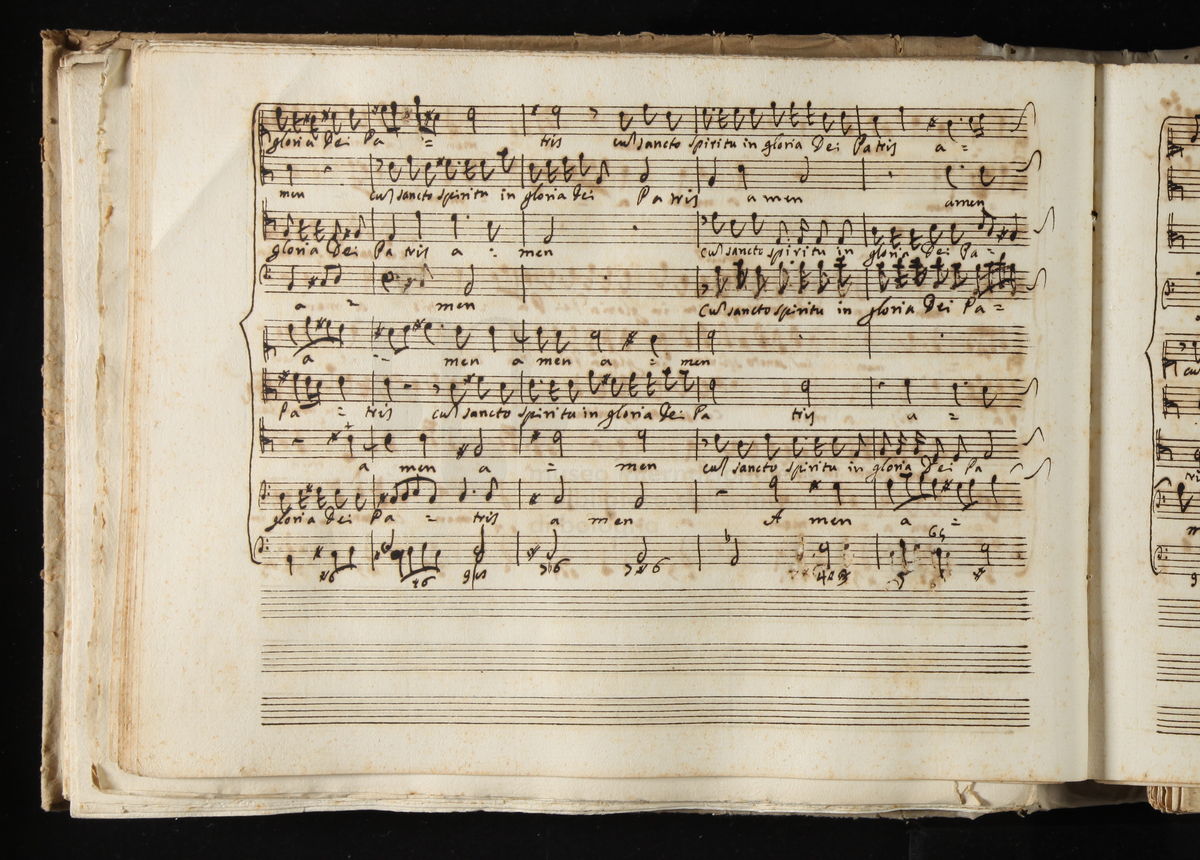 gloria Dei Pa = tris cu͂ sancto spiritu in gloria Dei Patris a =
men cu͂ sancto spiritu in gloria dei Patris amen amen
gloria Dei Patris a : men cu͂ sancto spiritu in gloria Dei Pa =
a = men cu͂ sancto spiritu in gloria Dei Pa =
a = men amen a = men
Pa = tris cu͂ sancto spiritu in gloria Dei Pa tris a =
a men a = men cu͂ sancto spiritu in gloria Dei Pa
gloria Dei Pa = tris a men A men a =